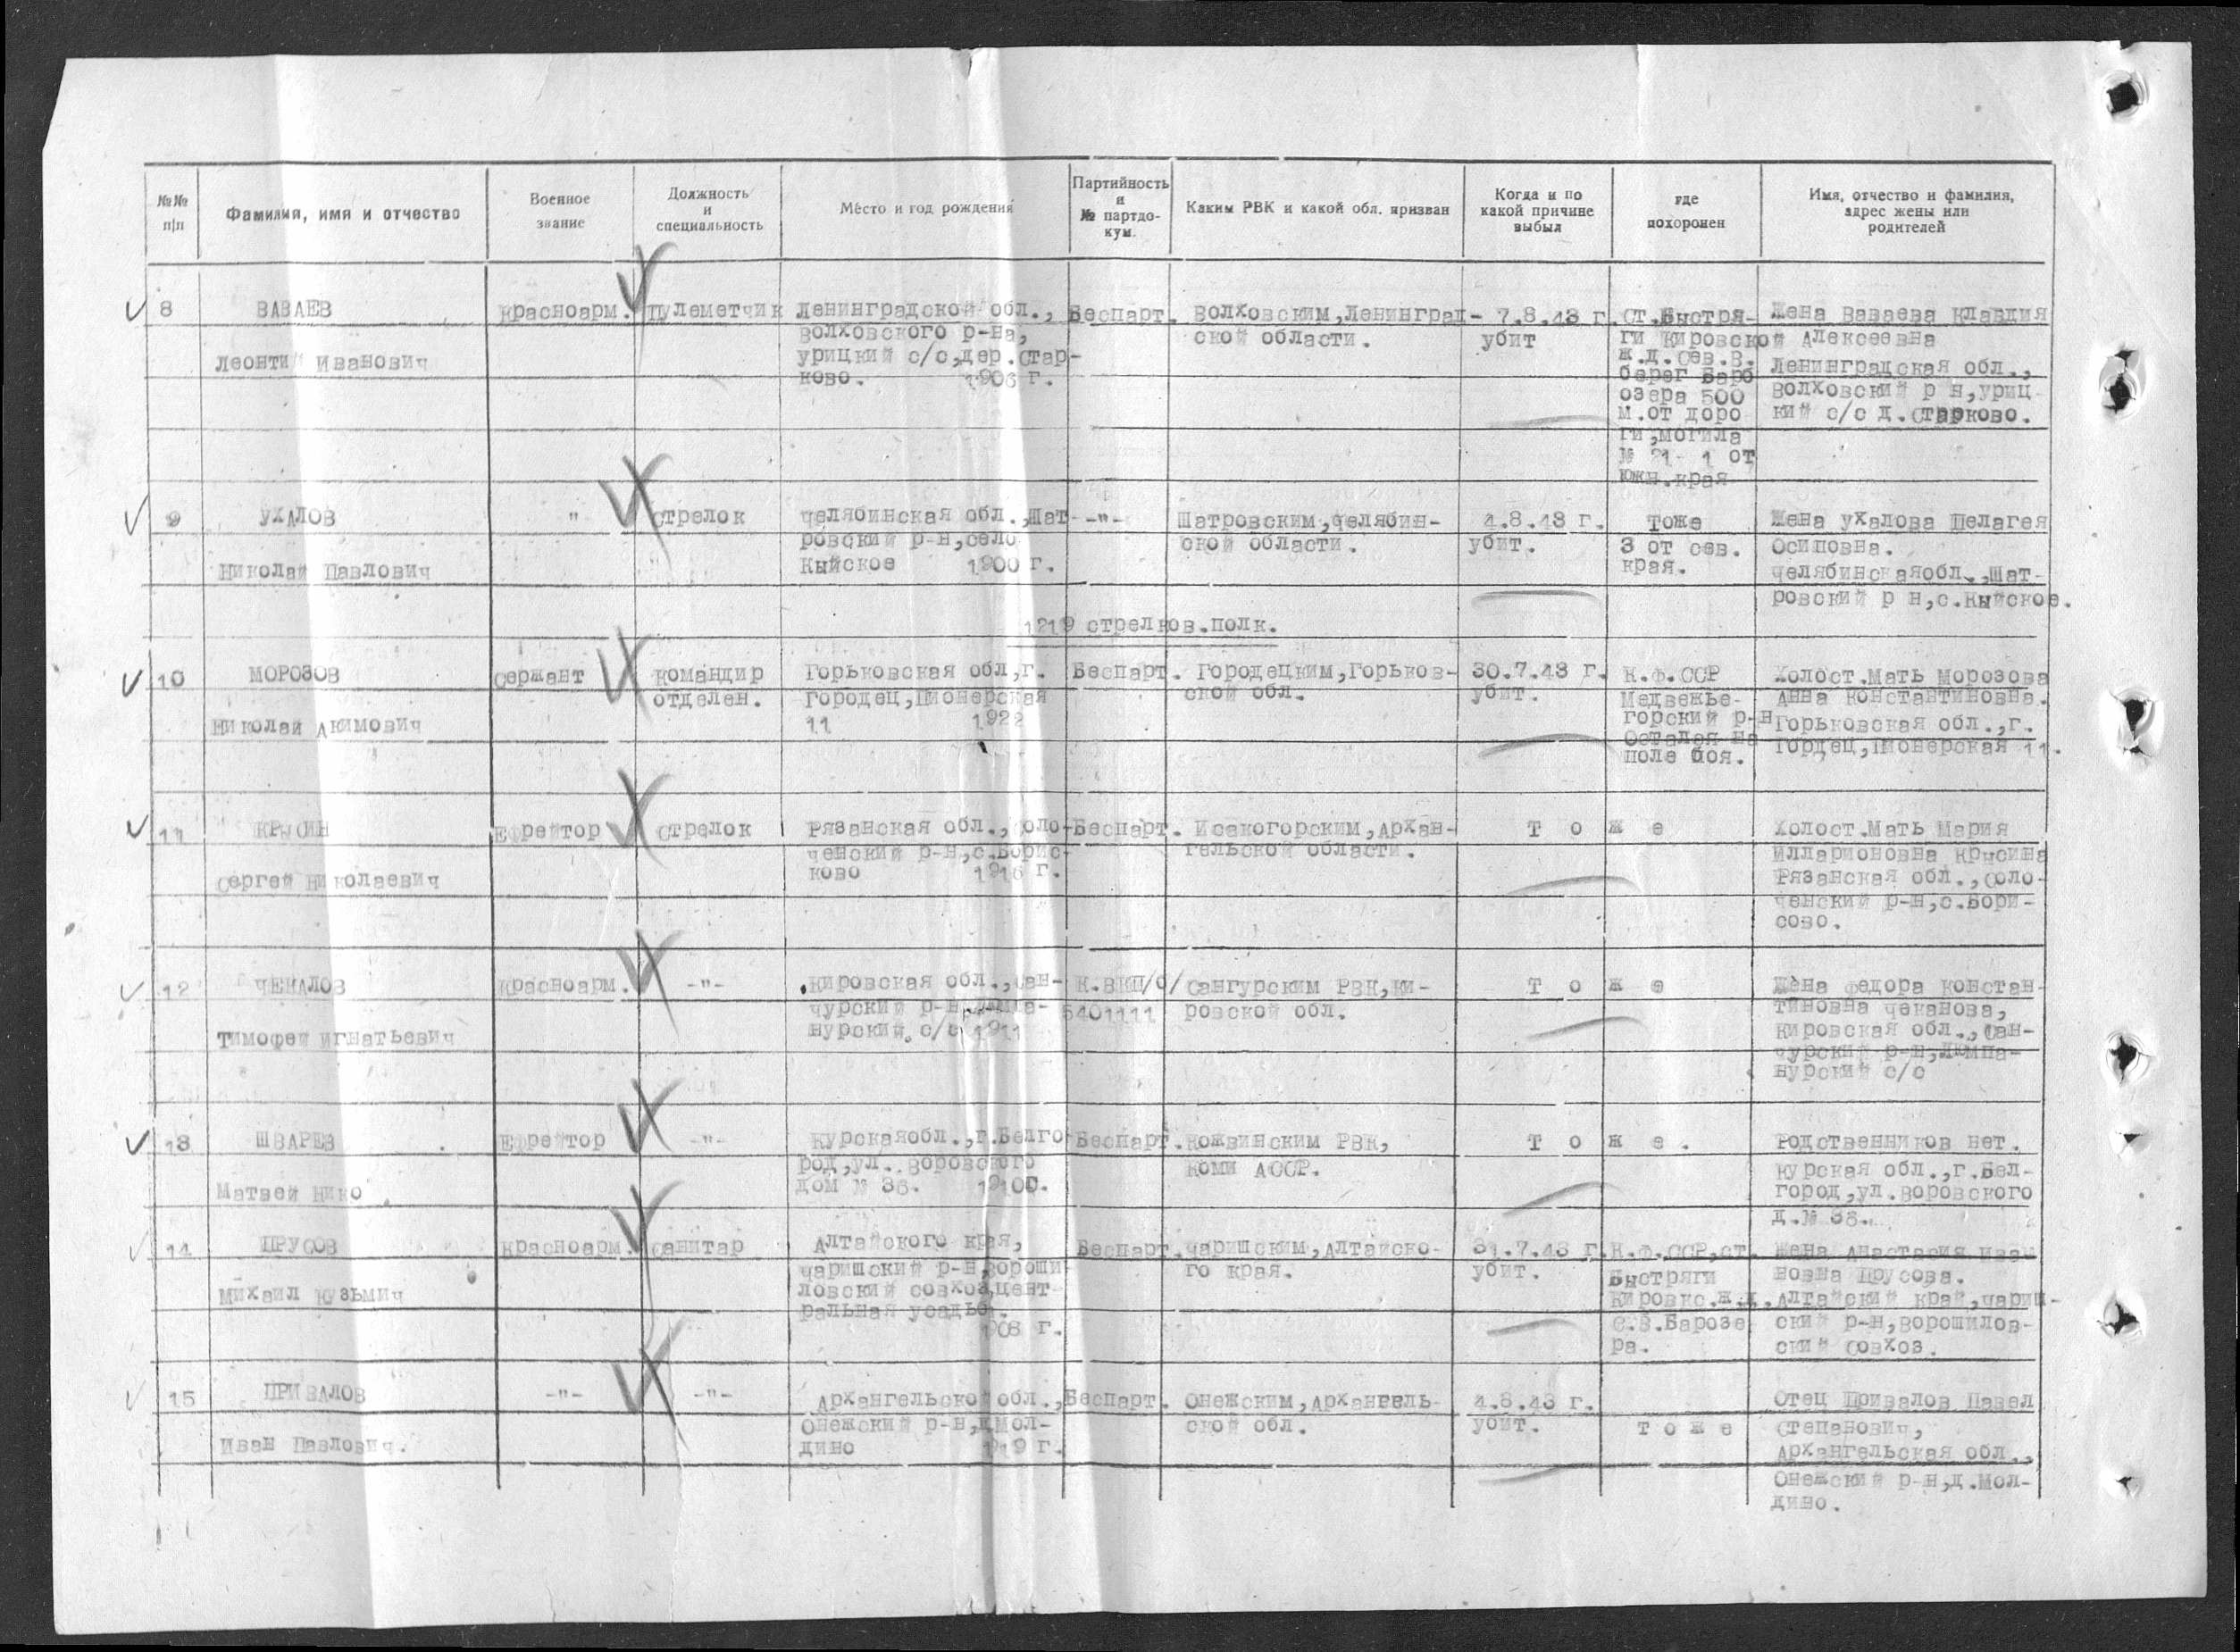 №№ п/п
Фамилия, имя и отчество
Военное звание
Должность и специальность
Место и год рождения
Партийность и № партдокум.
Каким РВК и какой обл. призван
Когда и по какой причине выбыл
где похоронен
Имя, отчество и фамилия, адрес жены или родителей
8
ВАВАЕВ
Леонтий Иванович
Красноарм.
Пулеметчик
Ленинградской обл.,
Волховского р-на,
урицкий с/с,дер.Стар-
ково. 1906 г.
Беспарт.
Волховским,Ленинград-
ской области.
7.8.43 г.
убит
Ст.Быстря-
ги Кировской
ж.д.сев.в.
берег Барб
озера 500
м.от доро
ги,могила
№ 21- 1 от
Южн.края
Жена Ваваева Клавдия
Алексеевна
Ленинградская обл.,
Волховский р н,уриц-
кий с/с д.Старково.
9
УХАЛОВ
Николай Павлович
"
Стрелок
Челябинская обл.,Шат-
ровский р-н,село
Кыйское 1900 г.
-"-
Шатровским,Челябин-
ской области.
4.8.43 г.
убит.
Тоже
3 от сев.
края.
Жена Ухалова Пелагея
Осиповна.
Челябинскаяобл.,Шат-
ровский р н,с.Кыйское.
1219 стрелков.полк.
10
МОРОЗОВ
Николай Акимович
Сержант
Командир
отделен.
Горьковская обл,г.
Городец,Пионерская
11 1922
Беспарт.
Городецким,Горьков-
ской обл.
30.7.43 г.
убит.
К.Ф.ССР
Медвежье-
горский р-н
Остался на
поле боя.
Холост.Мать Морозова
Анна Константиновна.
Горьковская обл.,г.
Гордец,Пионерская 11.
11
КРЫСИН
Сергей Николаевич
Ефрейтор
Стрелок
Рязанская обл.,Соло-
ченский р-н,с.Борис-
ково 1916 г.
Беспарт.
Исакогорским,Архан-
гельской области.
Т о ж е
Холост.Мать Мария
Илларионовна Крысина
Рязанская обл.,Соло-
ченский р-н,с.Бори-
сово.
12
ЧЕКАЛОВ
Тимофей Игнатьевич
Красноарм.
-"-
Кировская обл.,Сан-
чурский р-н,Люмпа-
нурский с/с 1911
К.ВКП/б/
5401111
Сангурским РВК,Ки-
ровской обл.
Т о ж е
Жена Федора Констан-
тиновна Чеканова,
Кировская обл.,Сан-
чурский р-н,Люмпа-
нурский с/с
13
ШВАРЕВ
Матвей Нико
Ефрейтор
-"-
Курскаяобл.,г.Белго-
род,ул.Воровского
дом № 36. 1910г.
Беспарт.
Кожвинским РВК,
Коми АССР.
Т о ж е .
Родственников нет.
Курская обл.,г.Бел-
город,ул.Воровского
д.№ 36.
14
ПРУСОВ
Михаил Кузьмич
Красноарм.
Санитар
Алтайского края,
Чаришский р-н,Вороши-
ловский совхоз,цент-
ральная усадьб.
1908 г.
Беспарт.
Чаришским,Алтайско-
го края.
31.7.43 г.
убит.
К.Ф.ССР,ст.
Быстряги
Кировкс.ж.д.
С.В.Барозе
ра.
Жена Анастасия Иван
новна Прусова.
Алтайский край,Чариш-
ский р-н,Ворошилов-
ский совхоз.
15
ПРИВАЛОВ
Иван Павлович.
-"-
-"-
Архангельской обл.,
Онежский р-н,д.Мол-
дино 1919 г.
Беспарт.
Онежским,Архангель-
ской обл.
4.8.43 г.
убит.
т о ж е
Отец Привалов Павел
Степанович,
Архангельская обл.,
Онежский р-н,д.Мол-
дино.